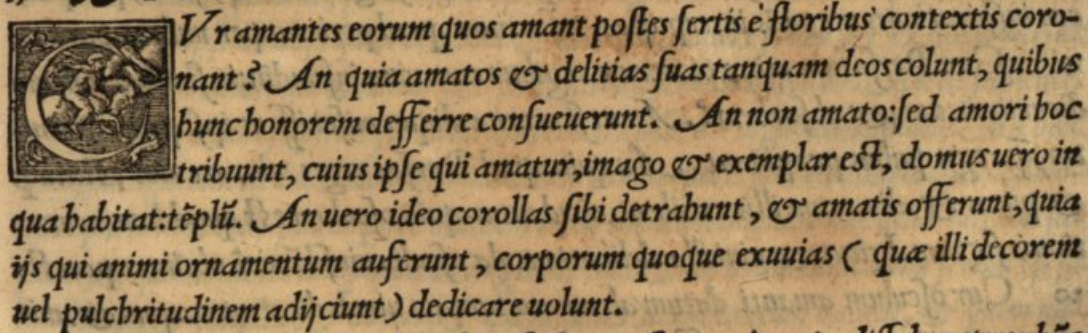 CVr amantes eorum quos amant postes sertis è floribus contextis coro-
nant? An quia amatos & delitias suas tanquam deos colunt, quibus
hunc honorem defferre consueuerunt. An non amato: sed amori hoc
tribuunt, cuius ipse qui amatur, imago & exemplar est, domus uero in
qua habitat: tẽplũ. An uero ideo corollas sibi detrahunt, & amatis offerunt, quia
ijs qui animi ornamentum auferunt, corporum quoque exuuias ( quæ illi decorem
uel pulchritudinem adijciunt) dedicare uolunt.